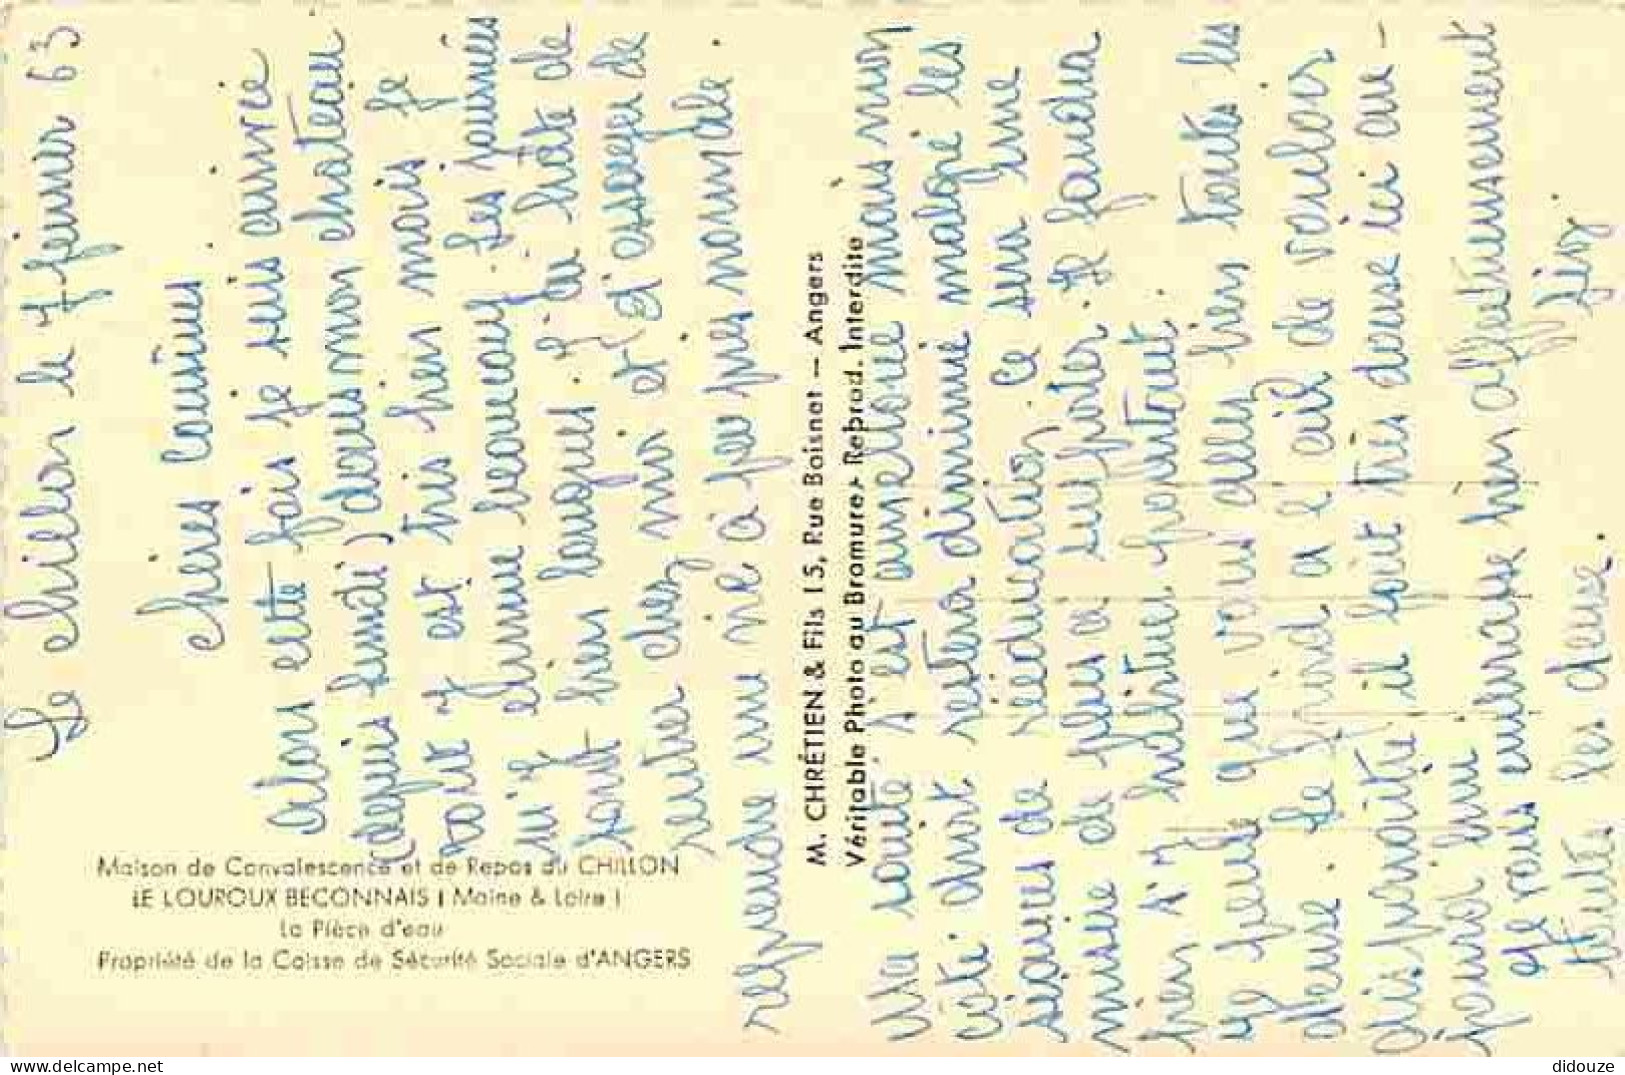 Le Chillon le 7 février 63
chères cousines
Alors cette fois je suis arrivée
(depuis lundi) dans mon château
tout y est très bien mais je
m'é ennuie beaucoup. Les journées
sont bien longues. J'ai hâte de
rentrer chez moi et d'essayer de
reprendre une vie à peu près normale.
Ma santé s'est améliorée mais mon
côté droit restera diminué malgré les
séances de rééducation. Ce sera une
misère de plus a supporter. Il faudra
bien s'y habituer pourtant.
Je pense que vous allez bien toutes les
deux. Le froid a l'air de vouloir
disparaître il fait très doux ici au-
jourd'hui
Je vous embrasse bien affectueusement
toutes les deux.
Maison de Convalescence et de Repos du CHILLON
LE LOUROUX BECONNAIS (Maine & Loire)
La Pièce d'eau
Propriété de la Caisse de Sécurité Sociale d'ANGERS
M. CHRÉTIEN & Fils 15, Rue Boisnet — Angers
Véritable Photo au Bromure - Reprod. Interdite
delcampe.net
didouze